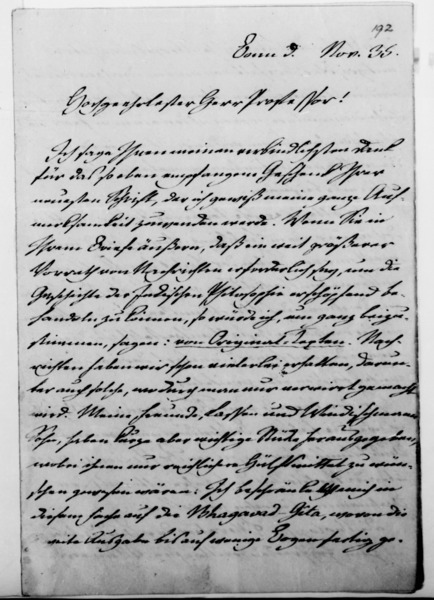 192
Bonn d. Nov. 35.
Hochgeehrtester Herr Professor!
Ich sage Ihnen meinen verbindlichsten Dank
für das so eben empfangene Geschenk Ihrer
neuesten Schrift, der ich gewiß meine ganze Auf-
merksamkeit zuwenden werde. Wenn Sie in
Ihrem Briefe äußern, daß ein weit größerer
Vorrath von Nachrichten erforderlich sey, um die
Geschichte der Indischen Philosophie erschöpfend be-
handeln zu können, so würde ich, um ganz beizu-
stimmen, sagen: von Original-Texten. Nach-
richten haben wir schon vielerlei erhalten, darun-
ter auch solche, wodurch man nur verwirrt gemacht
wird. Meine Freunde, Lassen und Windischmann
Sohn, haben kurze aber wichtige Stücke herausgegeben,
wobei ihnen nur reichlichere Hülfsmittel zu wün-
schen gewesen wären. Ich beschränke mich in
diesem Fache auf die Bhagavad-Gita, wovon die
2te Ausgabe bis auf wenige Bogen fertig ge-